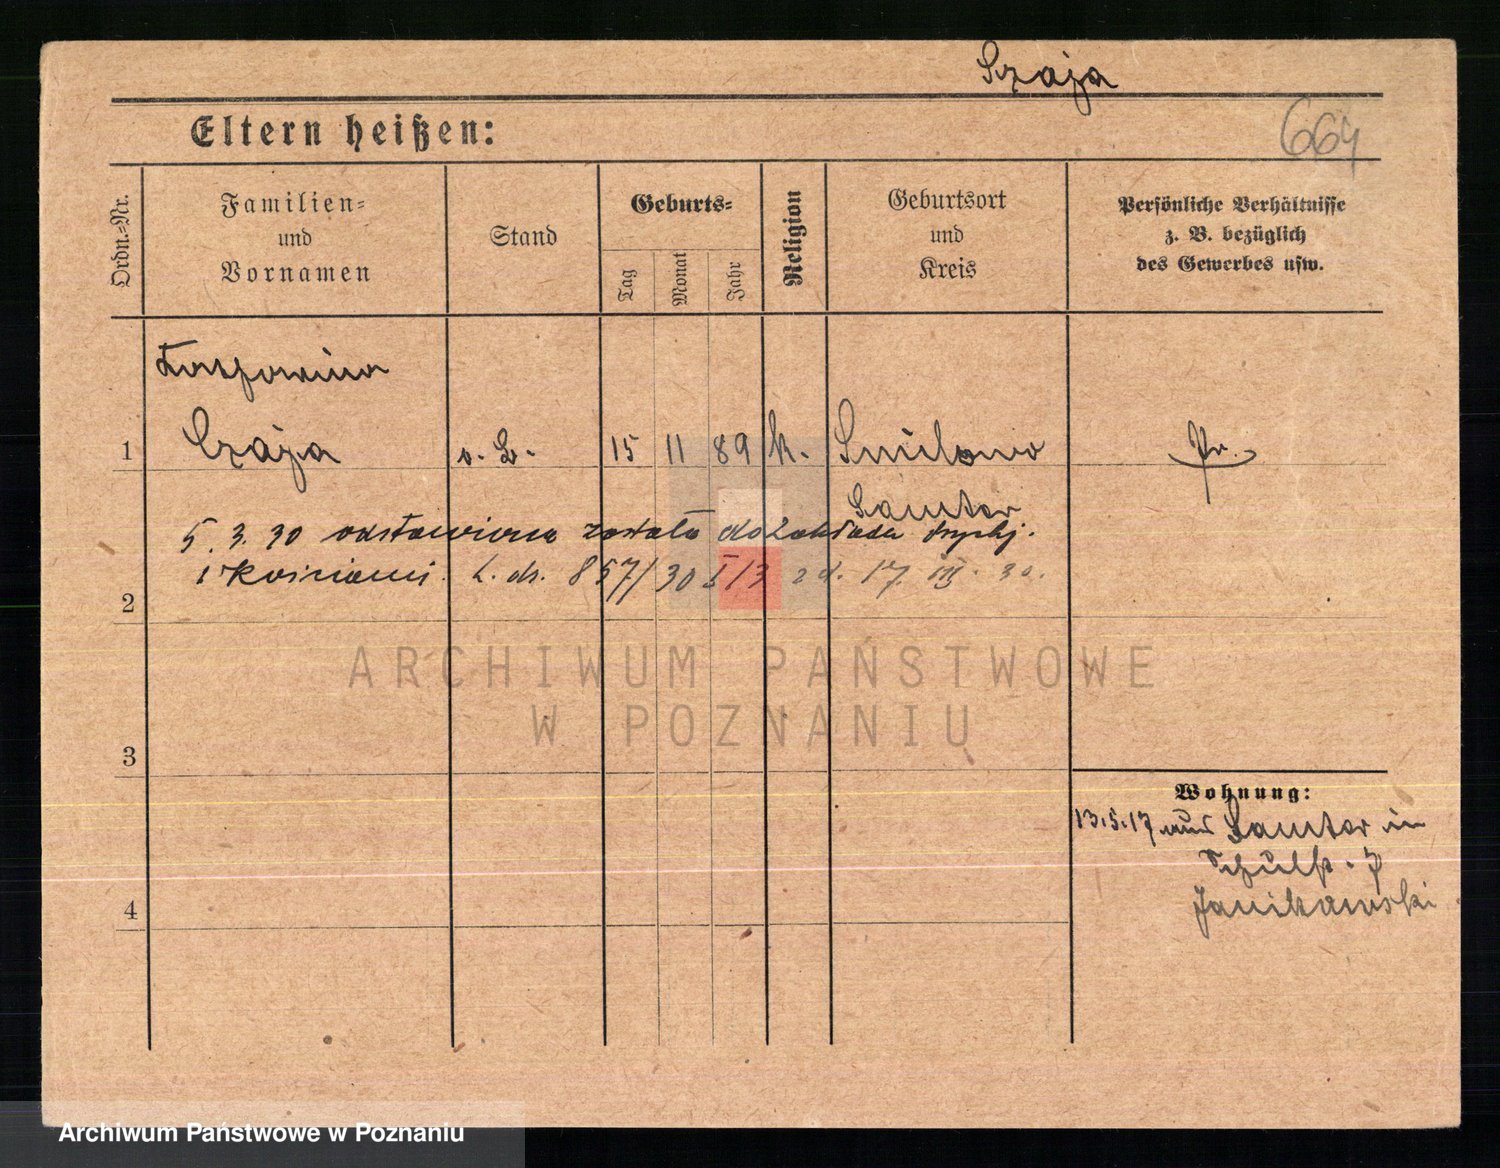 Szaja
Eltern heißen:
664
Ordn.-Nr.
Familien-
und
Vornamen
Stand
Geburts-
Tag
Monat
Jahr
Religion
Geburtsort
und
Kreis
Persönliche Verhältnisse
z. B. bezüglich
des Gewerbes usw.
1
Szaja
15 11 89 k. Smilowo
Pr.
Samter
5. 3. 30 odstawiona została do Zakładu
w Kościanie L. dz. 857/30 I/3 z d. 17. III. 30.
2
3
4
Wohnung:
13.5.17 aus Samter in
Schulstr. 7
Janikowski
ARCHIWUM PAŃSTWOWE
W POZNANIU
Archiwum Państwowe w Poznaniu